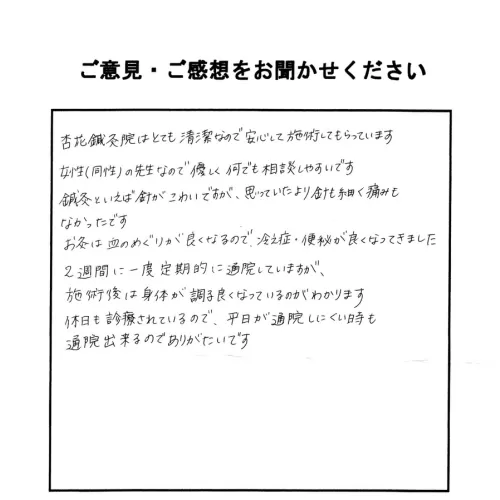 ご意見・ご感想をお聞かせください
杏花鍼灸院はとても清潔なので安心して施術してもらっています
女性(同性)の先生なので優しく何でも相談しやすいです
鍼灸といえば針がこわいですが、思っていたより針も細く痛みも
なかったです
お灸は血のめぐりが良くなるので、冷え症・便秘が良くなってきました
2週間に一度定期的に通院していますが、
施術後は身体が調子良くなっているのがわかります
休日も診療されているので、平日が通院しにくい時も
通院出来るのでありがたいです